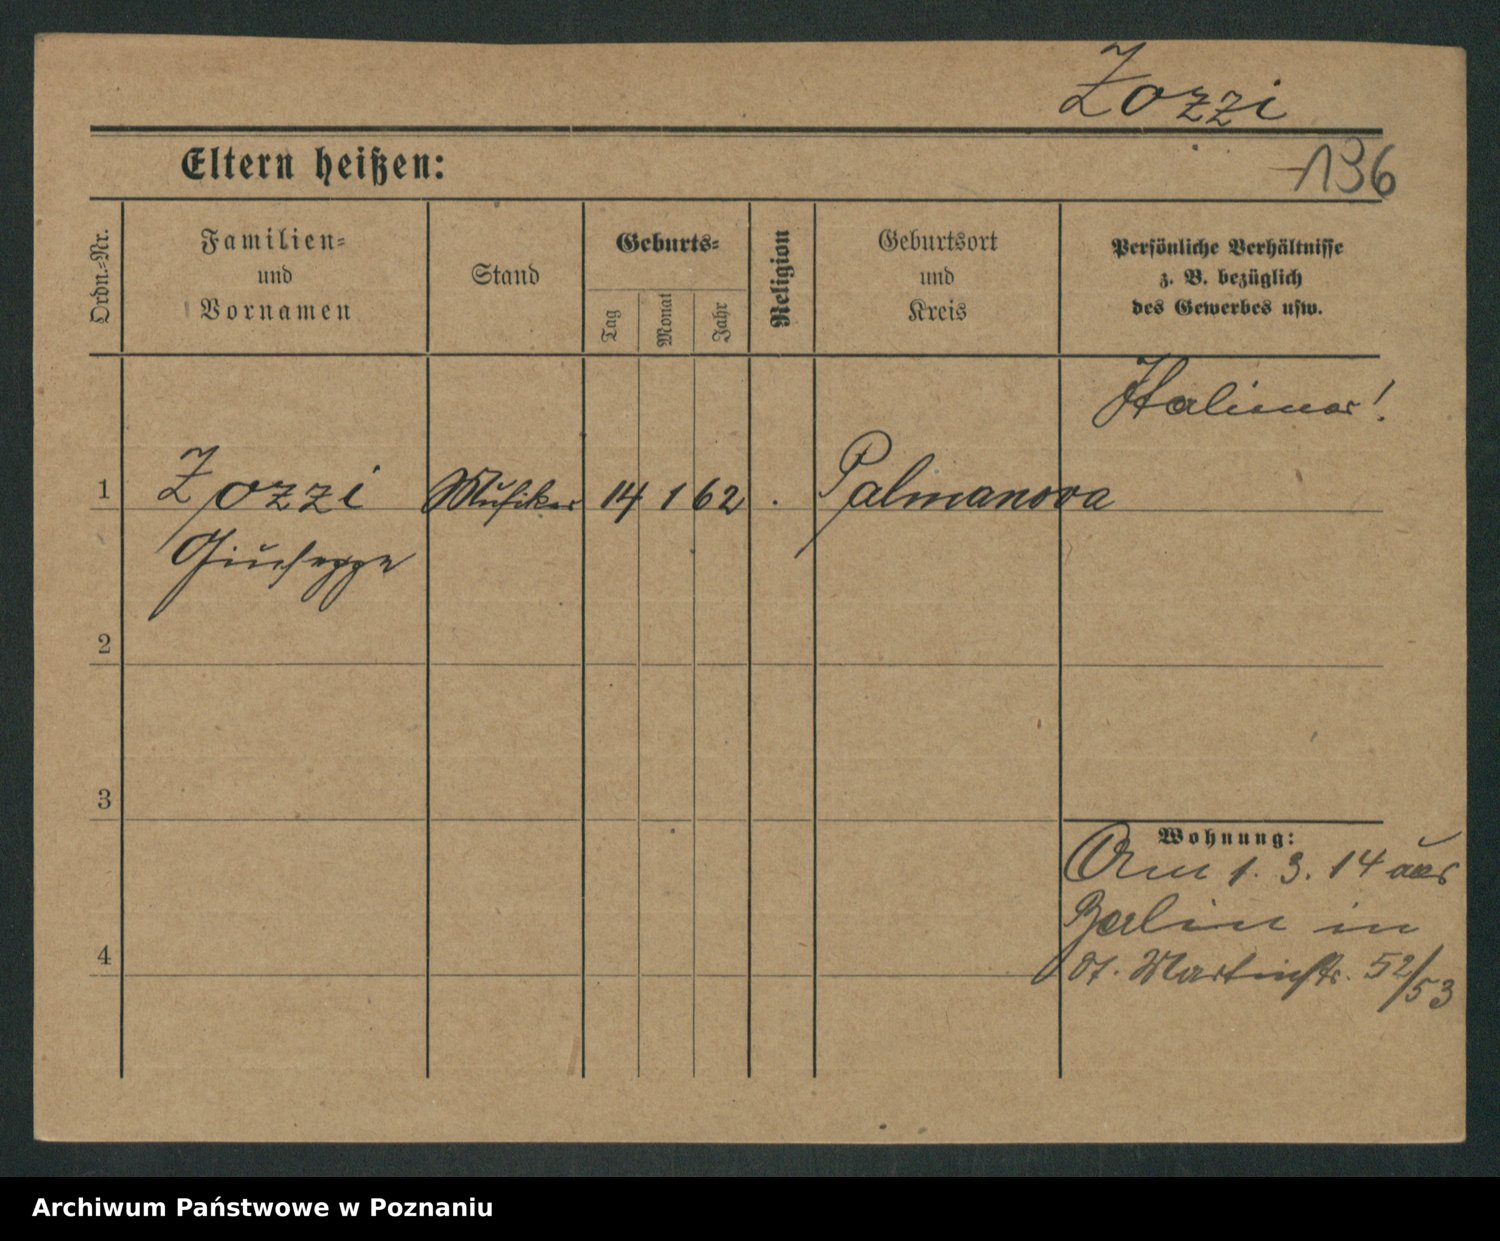 Zozzi
Eltern heißen:
136
Ordn.-Nr.
Familien-
und
Vornamen
Stand
Geburts-
Tag
Monat
Jahr
Religion
Geburtsort
und
Kreis
Persönliche Verhältnisse
z. B. bezüglich
des Gewerbes usw.
Italiener!
1 Zozzi Musiker 14 1 62 Palmanova
Giuseppe
2
3
Wohnung:
Am 1. 3. 14 aus
Berlin in
St. Martinstr. 52/53
4
Archiwum Państwowe w Poznaniu